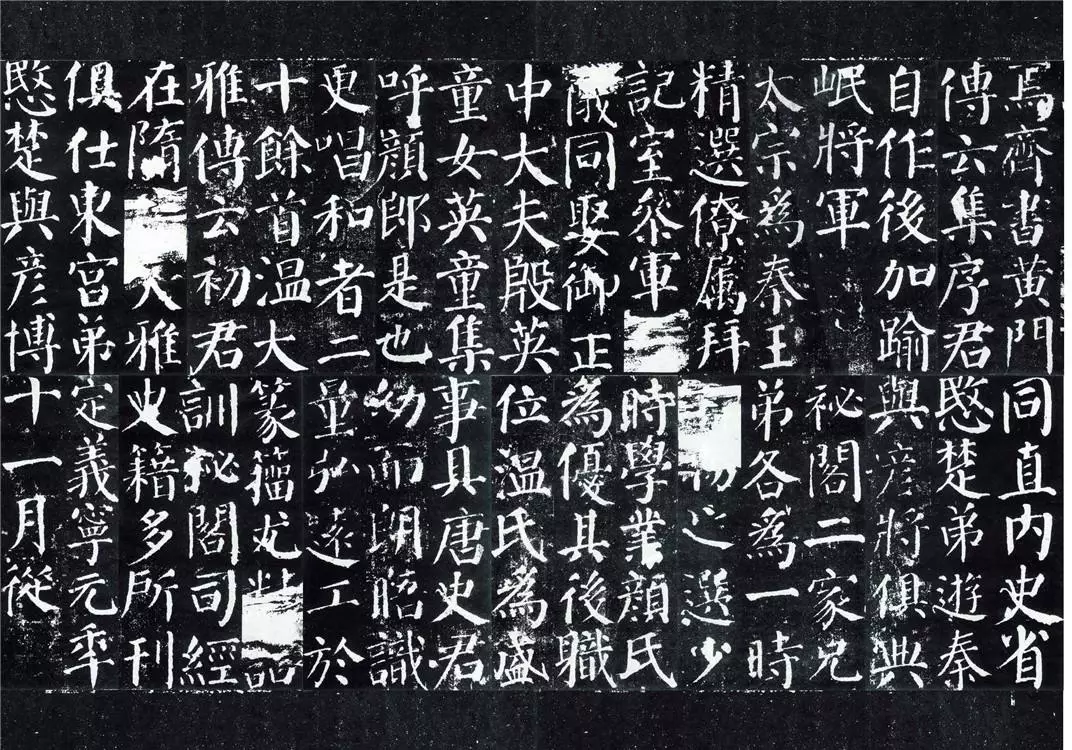 焉齊書黄門
傳云集序君
自作後加踰
岷將軍
太宗為秦王
精選僚属拜
記室叅軍
儀同娶御正
中大夫殷英
童女英童集
呼顔郎是也
更唱和者二
十餘首温大
雅傳云初君
在隋大雅
俱仕東宫弟
愍楚與彦博
同直内史省
愍楚弟遊秦
與彦將俱典
祕閣二家兄
弟各為一時
物之選少
時學業顔氏
為優其後職
位温氏為盛
事具唐史君
幼而朗晤識
量弘遠工於
篆籀尤
訓秘閣司經
史籍多所刊
定義寧元年
十一月從